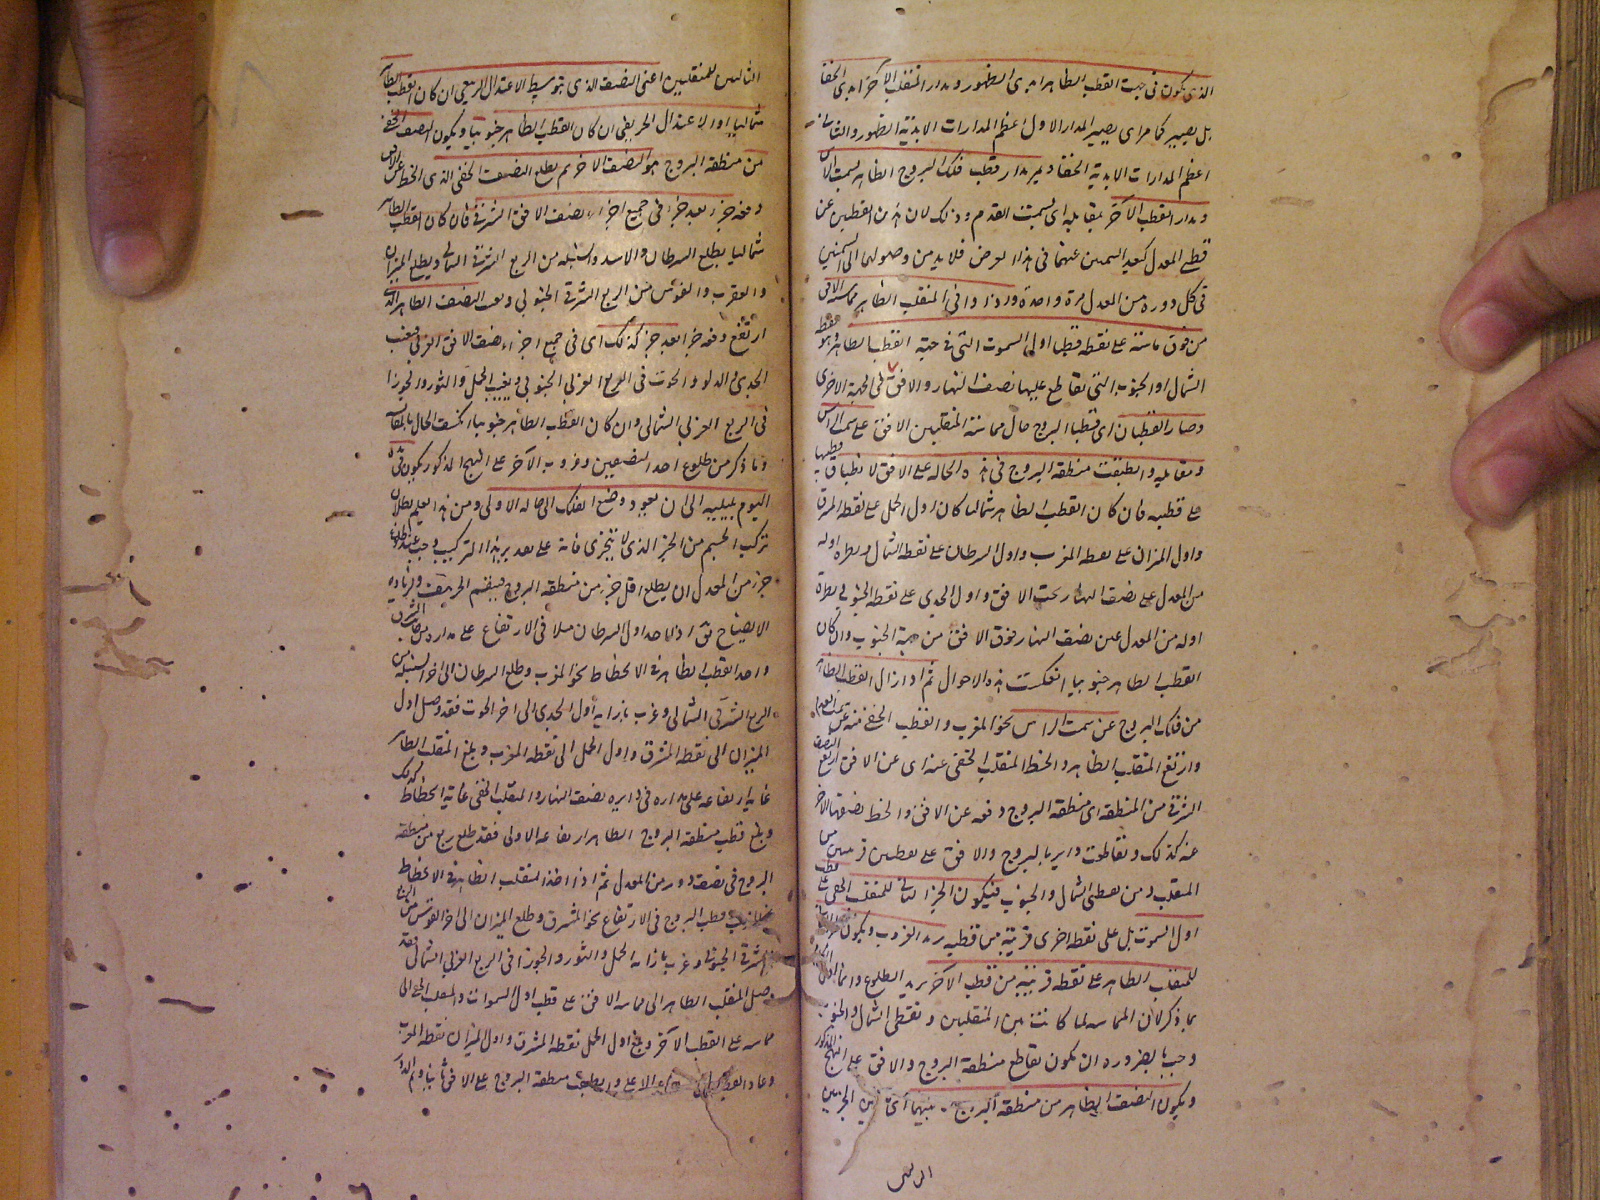 الذي يكون في جهت القطب الظاهر ابدى الظهور ومدار المنقلب الآخر ابدى الخفا
بل يصير كما مر اى يصير المدار الاول اعظم المدارات الابدية الظهور والثانى
اعظم المدارات الابدية الخفا ويمر مدار قطب فلك البروج الظاهر بسمت الراس
ومدار القطب الآخر بمقابله اى بسمت القدم وذلك لان هذين القطبين عن
قطبى المعدل كبعد السمتين عنهما في هذا العرض فلا بد من وصولهما الى السمتين
في كل دورة من المعدل مرة واحدة واذا وافى المنقلب الظاهر مماسة الافق
من فوق ماسته على نقطة قطبا اول السموت التى في جهة القطب الظاهر وهو نقطة
الشمال او الجنوب التى تقاطع عليها نصف النهار والافق في الجهة الاخرى
وصار القطبان اى قطبا البروج حال مماسة المنقلبين الافق على سمت الراس
ومقابله وانطبقت منطقة البروج في هذه الحالة على الافق لانطباق قطبيها
على قطبيه فان كان القطب الظاهر شماليا كان اول الحمل على نقطة المشرق
واول الميزان على نقطة المغرب واول السرطان على نقطة الشمال ونظيرة اوله
من المعدل على نصف النهار تحت الافق واول الجدي على نقطة الجنوب ونظيرة
اوله من المعدل على نصف النهار فوق الافق من جهة الجنوب وان كان
القطب الظاهر جنوبيا انعكست هذه الاحوال ثم اذا زال القطب الظاهر
من فلك البروج عن سمت الراس نحو المغرب والقطب الخفي منه عن سمت القدم
وارتفع المنقلب الظاهر وانحط المنقلب الخفى عنه اى عن الافق ارتفع النصف
الشرقى من المنطقة اى منطقة البروج دفعة عن الافق وانحط نصفها الآخر
عنه كذلك وتقاطعت دايرتا البروج والافق على نقطتين قريبتين من
المنقلب ومن نقطتى الشمال والجنوب فيكون الجزء الثانى للمنقلب الخفى على قطب
اول السموت بل على نقطة اخرى قريبة من قطبيه يريد الغروب ويكون الجزء
للمنقلب الظاهر على نقطة قريبة من قطب الآخر يريد الطلوع وانما
بما ذكر لان المماسة لما كانت بين المنقلبين ونقطتى الشمال والجنوب
وجب بالضرورة ان يكون تقاطع منطقة البروج والافق على النهج المذكور
ويكون النصف الظاهر من منطقة البروج بينهما اى بين الجزئين
التاليين للمنقلبين اعنى النصف الذي يتوسطه الاعتدال الربيعى ان كان القطب الظاهر
شماليا او الاعتدال الخريفى ان كان القطب الظاهر جنوبيا ويكون النصف الخفى
من منطقة البروج هو النصف الآخر ثم يطلع النصف الخفى الذي انحط عن الافق
دفعة جزء بعد جزء فى جميع اجزاء نصف الافق الشرقى فان كان القطب الظاهر
شماليا يطلع السرطان والاسد والسنبلة من الربع الشرقى الشمالى ويطلع الميزان
والعقرب والقوس من الربع الشرقى الجنوبى ويغيب النصف الظاهر الذي
ارتفع دفعة جزء بعد جزء كذلك اى في جميع اجزاء نصف الافق الغربى فيغيب
الجدى والدلو والحوت في الربع الغربى الجنوبى ويغيب الحمل والثور والجوزا
في الربع الغربى الشمالى وان كان القطب الظاهر جنوبيا انعكست الحال بالمقابلة
وما ذكر من طلوع احد النصفين وغروب الآخر على النهج المذكور يكون في مدة
اليوم بليلته الى ان يعود وضع الفلك الى حاله الاولى ومن هذا يعلم بطلان
تركب الجسم من الجزء الذي لا يتجزى فانه على تقدير هذا التركيب وجب عند طلوع
جزء من المعدل ان يطلع اقل جزء من منطقة البروج فينقسم الجزء ولزيادة
الايضاح نقول اذا اخذ اول السرطان مثلا فى الارتفاع على مداره من جانب المشرق
واخذ القطب الظاهر فى الانحطاط نحو المغرب وطلع السرطان الى آخر السنبلة من
الربع الشرقى الشمالى وغرب بازايه اول الجدى الى آخر الحوت فقد وصل اول
الميزان الى نقطة المشرق واول الحمل الى نقطة المغرب وبلغ المنقلب الظاهر
غاية ارتفاعه على مداره فى دايرة نصف النهار والمنقلب الخفى غاية انحطاطه كذلك
وبلغ قطب منطقة البروج الظاهر ارتفاعه الاولى فقد طلع ربع من منطقة
البروج فى نصف دور من المعدل ثم اذا اخذ المنقلب الظاهر فى الانحطاط
قطب البروج فى الارتفاع نحو المشرق وطلع الميزان الى آخر القوس من الربع
الشرقى الجنوبى وغرب بازائه الحمل والثور والجوزا فى الربع الغربى الشمالى فقد
وصل المنقلب الظاهر الى مماسة الافق على قطب اول السموات والمنقلب الخفى الى
مماسته على القطب الآخر وبلغ اول الحمل نقطة المشرق واول الميزان نقطة المغرب
وعاد القطب الى الاعلى وانطبقت منطقة البروج على الافق ثانيا وتم الدور
الراس